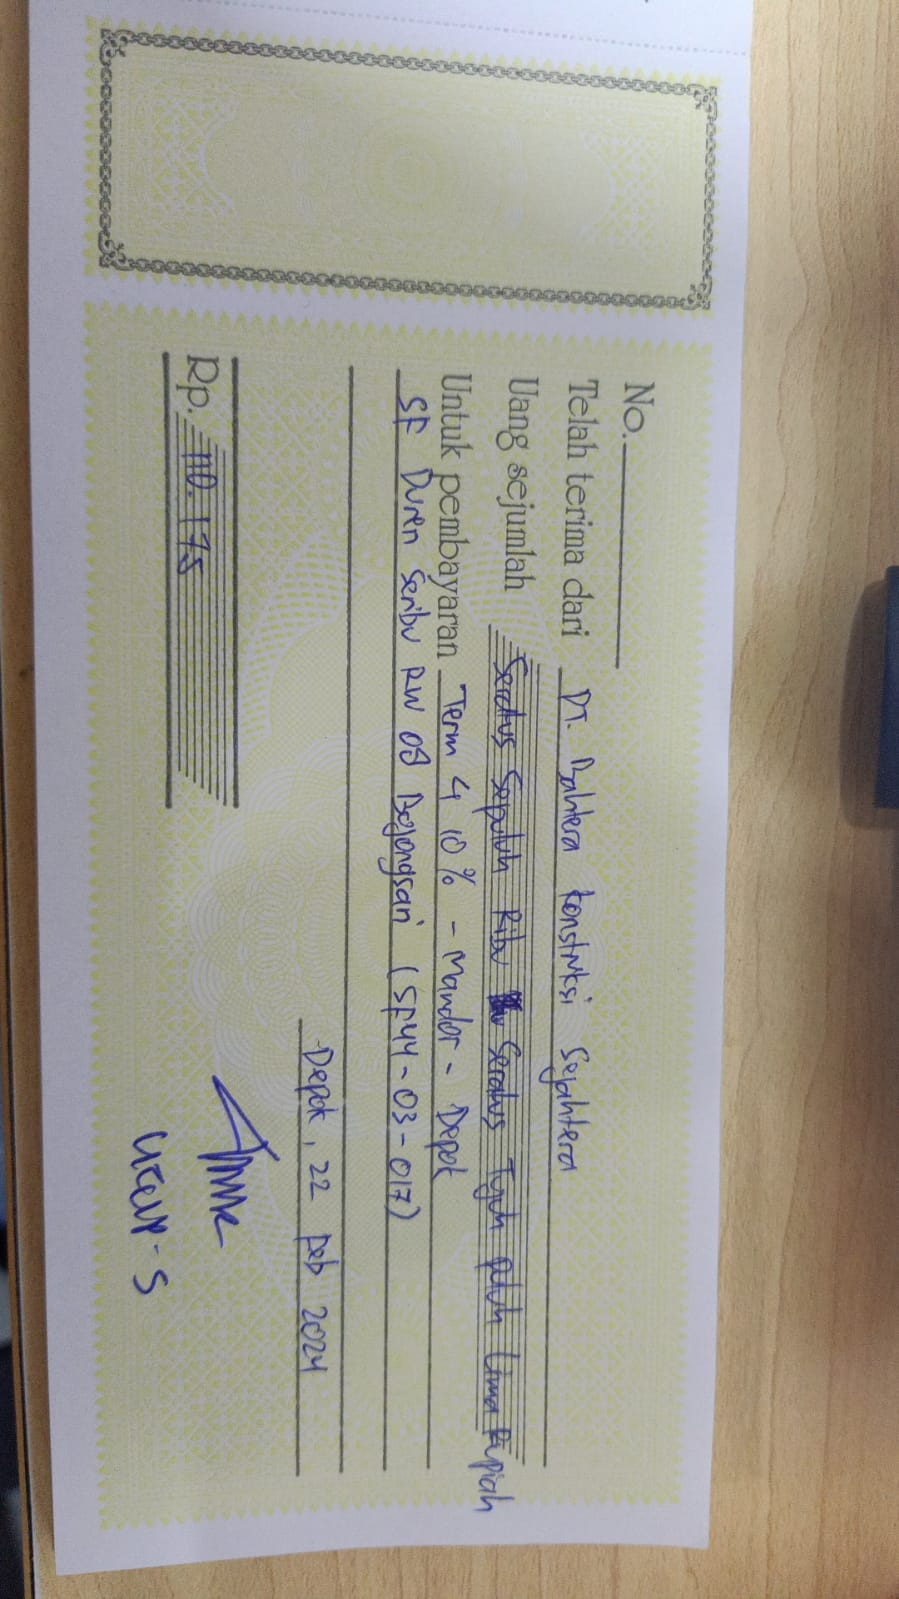 No.
Telah terima dari PT. Bahtera Konstruksi Sejahtera
Uang sejumlah Seratus Sepuluh Ribu Seratus Tujuh puluh Lima Rupiah
Untuk pembayaran Term 4 10% - Mandor - Depok
SF Duren Seribu RW 08 Bojongsari (SF44-03-017)
Depok, 22 Feb 2024
Rp. 110.175